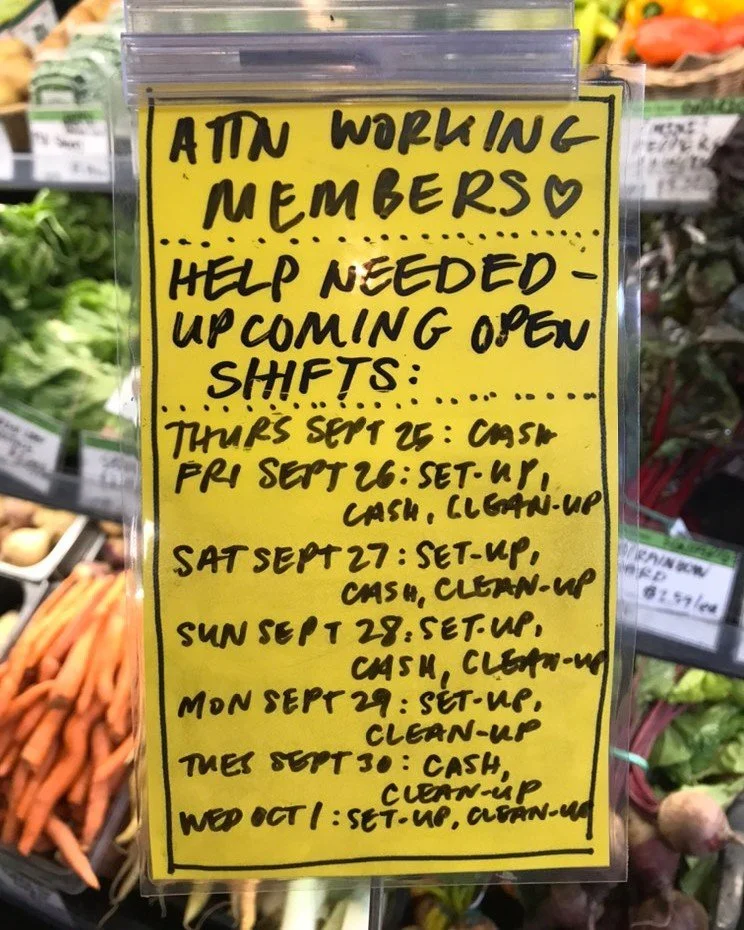 ATTN WORKING
MEMBERS♡
HELP NEEDED -
UPCOMING OPEN
SHIFTS:
THURS SEPT 25: CASH
FRI SEPT 26: SET-UP,
CASH, CLEAN-UP
SAT SEPT 27: SET-UP,
CASH, CLEAN-UP
SUN SEPT 28: SET-UP,
CASH, CLEAN-UP
MON SEPT 29: SET-UP,
CLEAN-UP
TUES SEPT 30: CASH,
CLEAN-UP
WED OCT 1: SET-UP, CLEAN-UP
RAINBOW
$2.59/ea